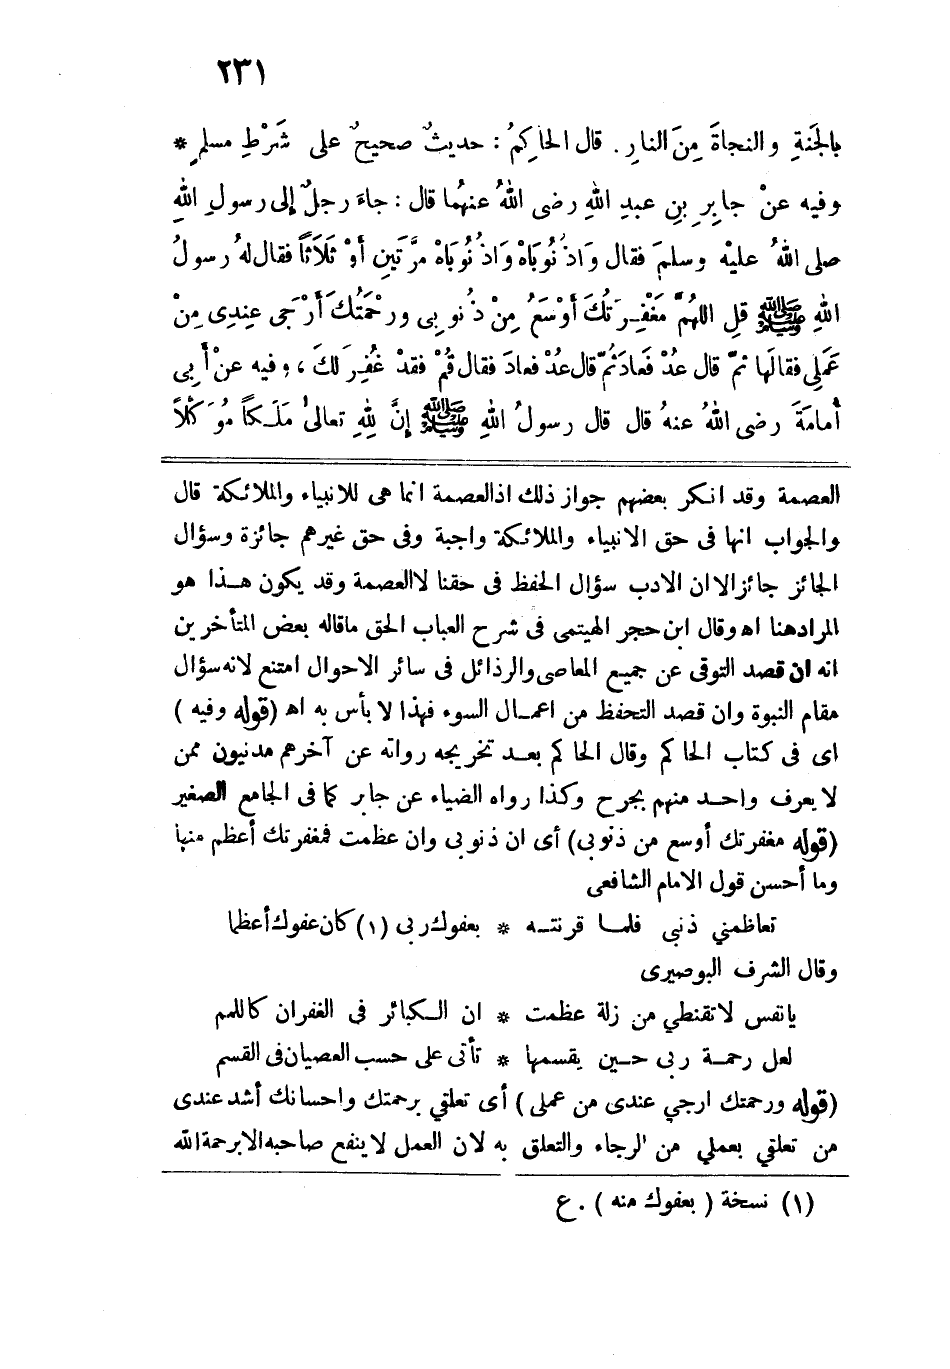 ٢٣١
بالجَنةِ والنجاةَ مِنَ النارِ . قال الحاكِمُ : حديثٌ صحيحٌ على شَرْطِ مسلمٍ *
وفيه عنْ جابِرِ بنِ عبدِ اللهِ رضى اللهُ عنهُما قال : جاءَ رجلٌ إلى رسولِ اللهِ
صلى اللهُ عليْه وسلمَ فقال وَاذُنُوبَاهْ وَاذُنُوبَاهْ مرَّتَينِ أَوْ ثَلَاثاً فقال لهُ رسولُ
اللهِ ﷺ قلِ اللهُمَّ مَغْفِرَتُكَ أَوْسَعُ مِنْ ذُنوبِى ورحْمَتُكَ أَرْجَى عِندِى مِنْ
عَمَلِى فقالَها ثمَّ قال عدْ فَعادَ ثُمَّ قال عدْ فعادَ فقال قُمْ فقدْ غُفِرَ لكَ ، وفيه عنْ أَبِى
أُمامَةَ رضى اللهُ عنهُ قال قال رسولُ اللهِ ﷺ إنَّ لِلهِ تعالىٰ مَلَكاً مُوَكَّلاً
العصمة وقد انكر بعضهم جواز ذلك اذالعصمة انما هى للانبياء والملائكة قال
والجواب انها فى حق الانبياء والملائكة واجبة وفى حق غيرهم جائزة وسؤال
الجائز جائزالا ان الادب سؤال الحفظ فى حقنا لاالعصمة وقد يكون هـذا هو
المرادهنا اه وقال ابن حجر الهيتمى فى شرح العباب الحق ماقاله بعض المتأخرين
انه ان قصد التوقى عن جميع المعاصى والرذائل فى سائر الاحوال امتنع لانه سؤال
مقام النبوة وان قصد التحفظ من اعمـال السوء فهذا لا بأس به اه (قوله وفيه )
اى فى كتاب الحاكم وقال الحاكم بعـد تخريجه رواته عن آخرهم مدنيون ممن
لا يعرف واحـد منهم بجرح وكذا رواه الضياء عن جابر كما فى الجامع الصغير
(قوله مغفرتك أوسع من ذنوبى) أى ان ذنوبى وان عظمت فمغفرتك أعظم منها
وما أحسن قول الامام الشافعى
تعاظمني ذنبى فلمـا قرنتـه * بعفوك ربى (١) كان عفوك أعظما
وقال الشرف البوصيرى
يانفس لا تقنطي من زلة عظمت * ان الـكبائر فى الغفران كاللمم
لعل رحمـة ربى حـين يقسمها * تأتى على حسب العصيان فى القسم
(قوله ورحمتك ارجي عندى من عملى ) أى تعلقي برحمتك واحسانك أشد عندى
من تعلقي بعملي من الرجاء والتعلق به لان العمل لا ينفع صاحبه الابرحمة الله
(١) نسخة ( بعفوك منه ) . ع